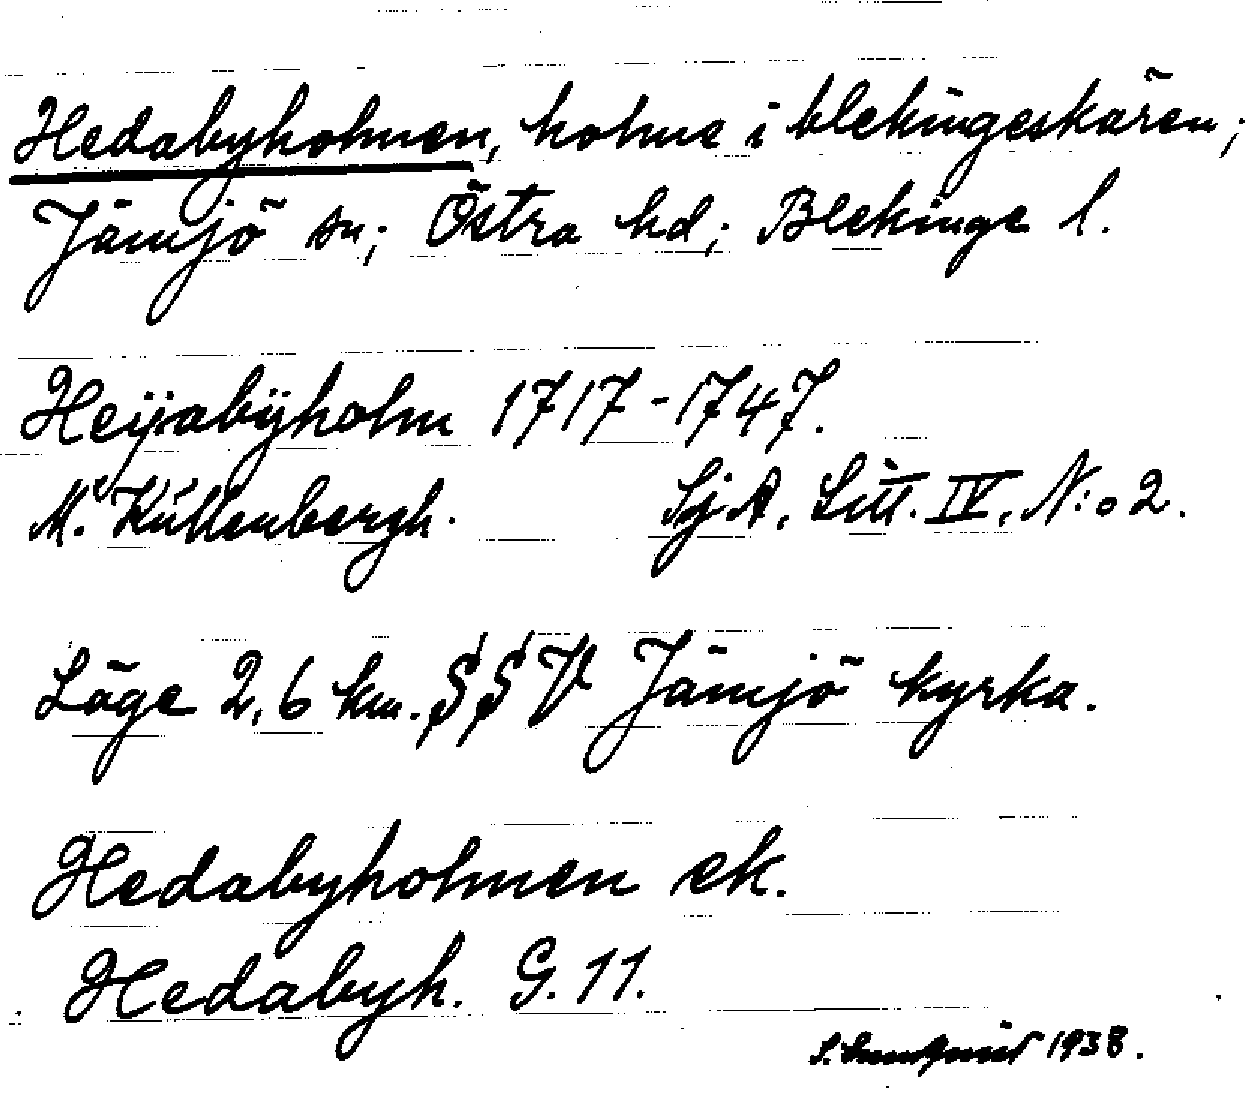 Hedabyholmen, holme i blekingeskären;
Jämjö sn; Östra hd; Blekinge l.
Heÿabÿholm 1717-1747.
M. Küllenbergh. SjA. Litt. IV, N:o 2.
Läge 2,6 km. SSV Jämjö kyrka.
Hedabyholmen ek.
Hedabyh. G. 11.
1938.